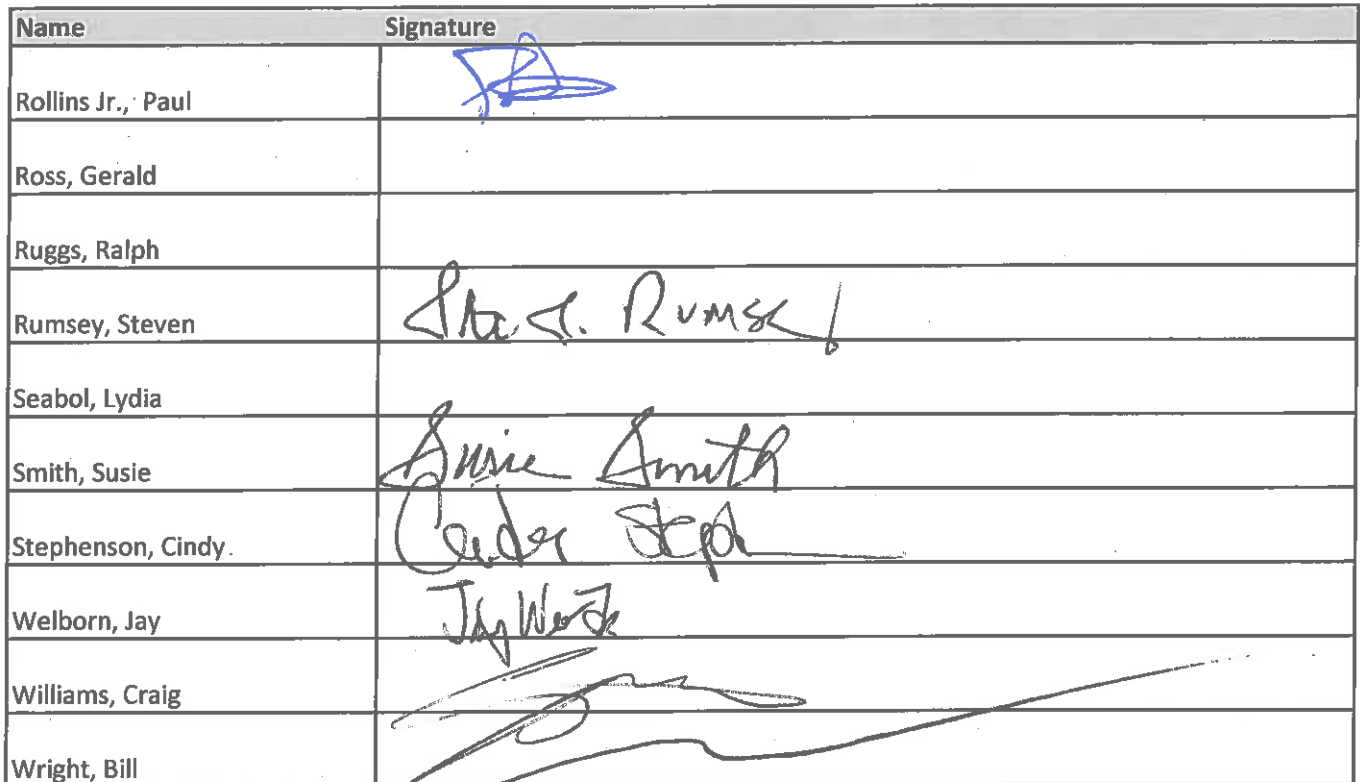 Name Signature
Rollins Jr., Paul
Ross, Gerald
Ruggs, Ralph
Rumsey, Steven
Seabol, Lydia
Smith, Susie Susie Smith
Stephenson, Cindy.
Welborn, Jay Jay
Williams, Craig
Wright, Bill